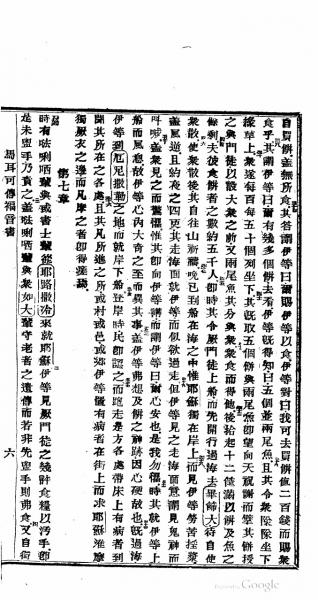 自買餅蓋無所食其答謂伊等曰爾賜伊等以食伊等對曰我可去買餅值二百錢而賜衆
食乎其謂伊等曰爾有幾多個餅去看伊等既得知曰五個並兩尾魚且其令衆隊隊坐下
綠草上衆遂每百每五十個列坐下其既取五個餅與兩尾魚即望向天祝謝而擘其餅授
之與門徒以設大衆之前又兩尾魚其分與衆衆食而得飽後拾起十二筐滿以餅及魚之
餘剩夫彼食餅者之數約五千人即時其令厥門徒上船而先開行過海去畢篩大待自使
衆散使衆散後其自往山祈禱晚已到船在海之中惟耶穌獨在岸上而見伊等勞苦搖槳
蓋風逆且約夜之四更其走海面就伊等而似欲過走但伊等見之走海面意謂見鬼神而
叫喊蓋衆見之而驚懼惟其即向伊等講而謂伊等曰心安也是我勿懼時其就伊等上
船而風息故伊等心內大奇之至而異其事蓋伊等弗想及餅之神跡因心硬故也既過海
伊等到厄尼撒勒之地而就岸下船登岸時民即認之而跑走是方各處帶床上有病者到
聞其所在之各處且其凡所進之所或村或邑或鄉伊等儘有病者在街上而求耶穌准摩
獨厥衣之邊而凡摩之者即得痊焉
第七章
時有𠵽唎哂輩與或書士輩從耶路撒冷來就耶穌伊等見厥門徒之幾許食糧以污手即
是未盥手乃責之蓋𠵽唎哂輩與衆如大輩守老者之遺傳而若非先盥手則弗食又自街
馬耳可傳福音書
六
Google